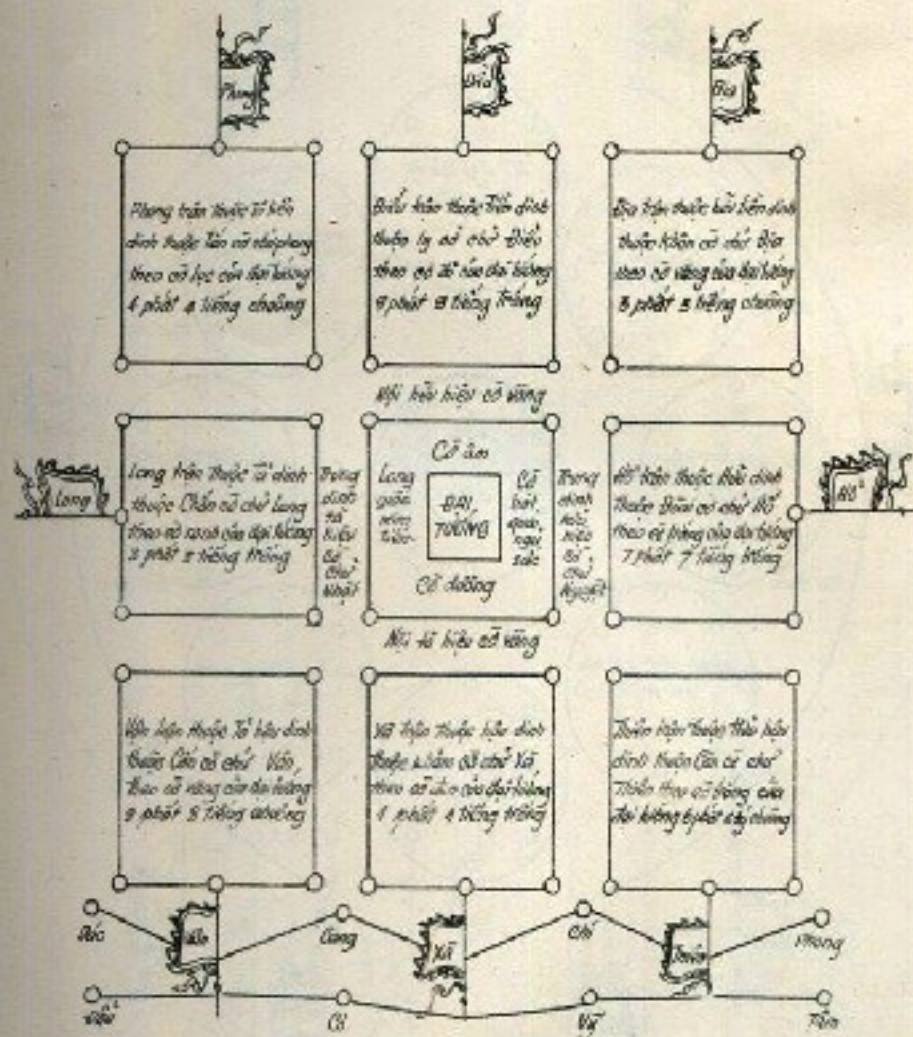 Phong
Điểu
Địa
Phong trận thuộc Tả tiền
dinh thuộc Tốn cờ chữ phong
theo cờ lục của đại tướng
4 phất 4 tiếng chuông
Điểu trận thuộc Tiền dinh
thuộc ly cờ chữ Điểu
theo cờ đỏ của đại tướng
9 phất 9 tiếng Trống
Địa trận thuộc hữu tiền dinh
thuộc Khôn cờ chữ Địa
theo cờ vàng của đại tướng
chuông
Nội hữu hiệu cờ vàng
Long
Long trận thuộc Tả dinh
thuộc Chấn cờ chữ Long
theo cờ xanh của đại tướng
3 phất 3 tiếng trống
Trung
dinh
tả
hiệu
cờ
chữ
Nhật
Cờ âm
ĐẠI
TƯỚNG
Cờ dương
Cờ
bát
quái,
ngũ
sắc
Trung
dinh
hữu
hiệu
cờ
chữ
Nguyệt
Hổ
Hổ trận thuộc Hữu dinh
thuộc Đoài cờ chữ Hổ
theo cờ trắng của đại tướng
7 phất 7 tiếng trống
Nội tả hiệu cờ vàng
Vân trận thuộc Tả hậu dinh
thuộc Cấn cờ chữ Vân,
theo cờ vàng của đại tướng
phất 8 tiếng chuông
Xà trận thuộc hậu dinh
thuộc khảm cờ chữ Xà
theo cờ của đại tướng
1 phất tiếng trống
Thiên trận thuộc Hữu hậu
dinh thuộc Càn cờ chữ
Thiên theo cờ trắng của
đại tướng 6 phất chuông
Giốc
Vân
Cang
Xà
Chỉ
Thiên
Phong
Đẩu
Cơ
Vỹ